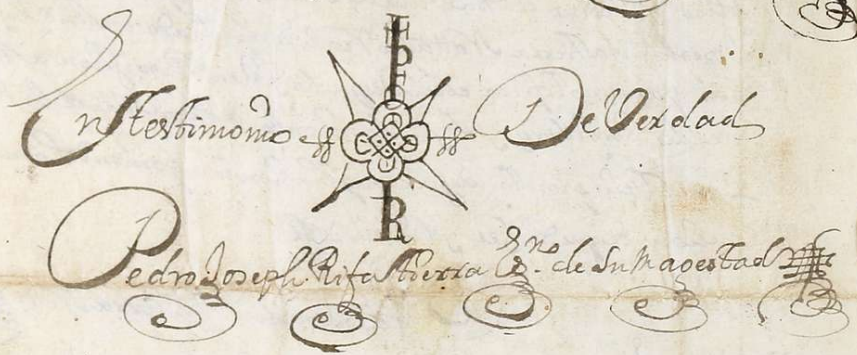 En testimonio De Verdad
Pedro Joseph Rifa Ess.no de Su Magestad